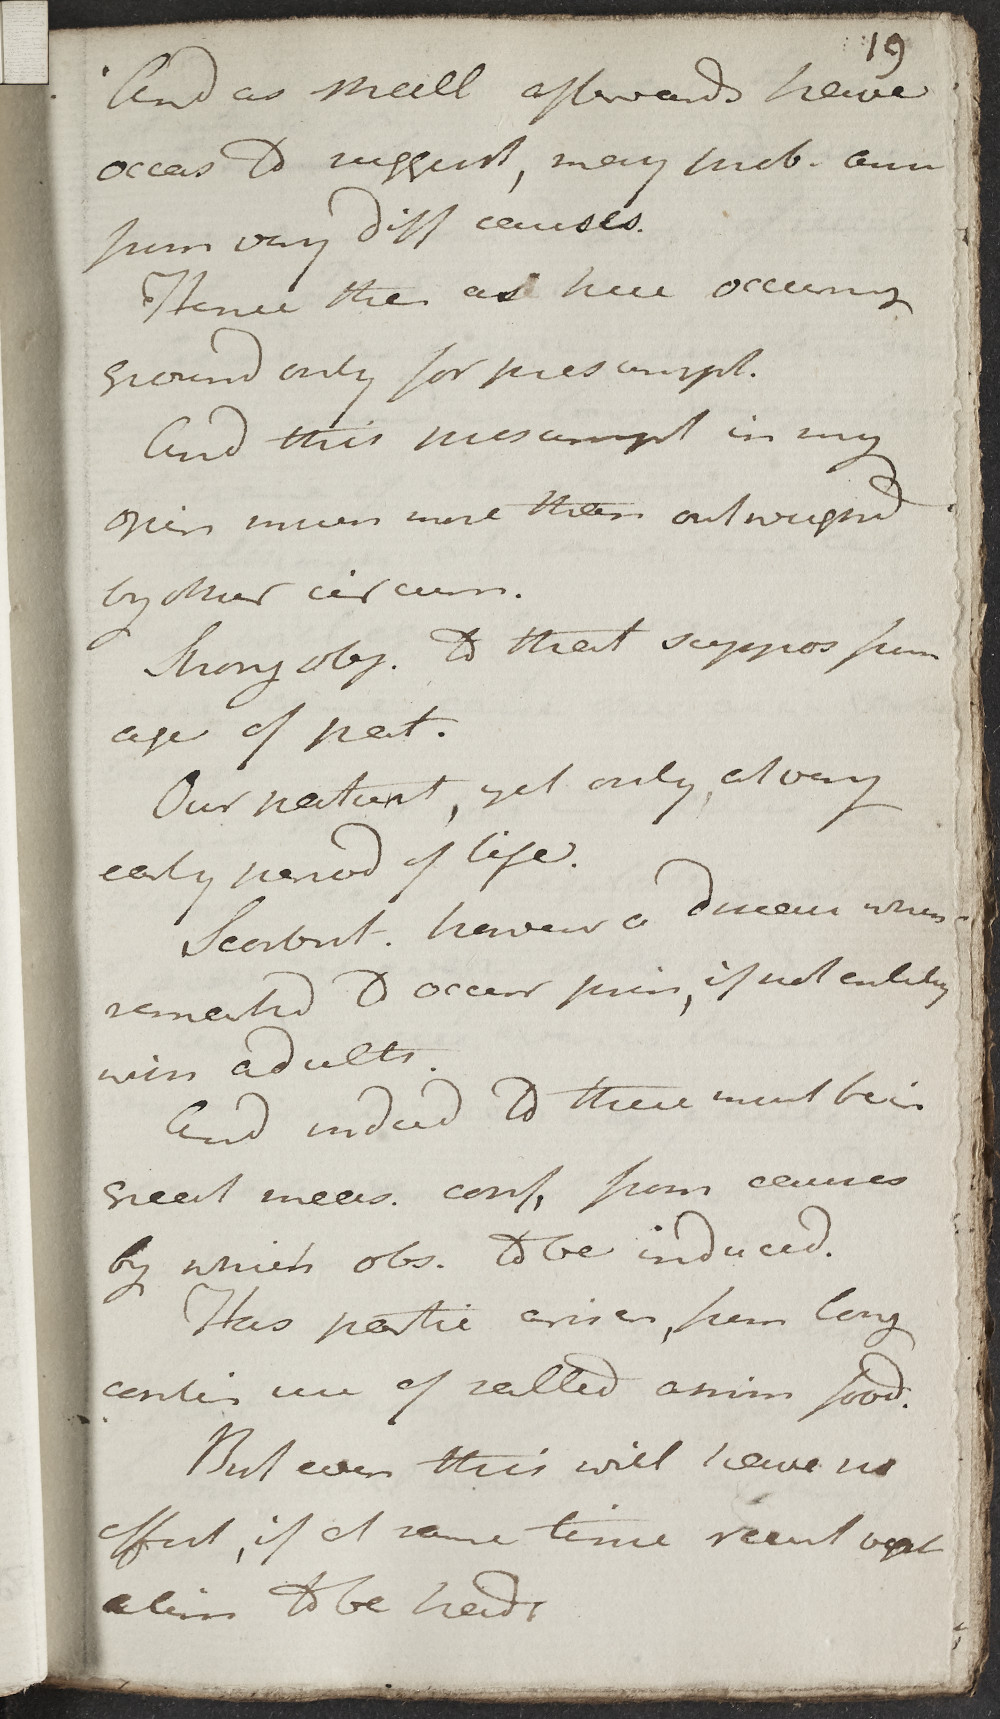 19
And as shall afterwards have
occas to suggest, may prob. arise
from very diff causes.
Hence then as here occurring
ground only for presumpt.
And this presumpt in my
opin much more than outweighd
by other circum.
Strong obj. to that suppos from
age of pat.
Our patient, yet only, at very
early period of life.
Scorbut. however a disease when
remarked to occur prin, if not entirely
with adults.
And indeed to these must be in
great meas. conf, from causes
by which obs. to be induced.
Has partic arisen, from long
contin use of salted anim food.
But even this will have no
effect, if at same time recent veget
alim to be had,